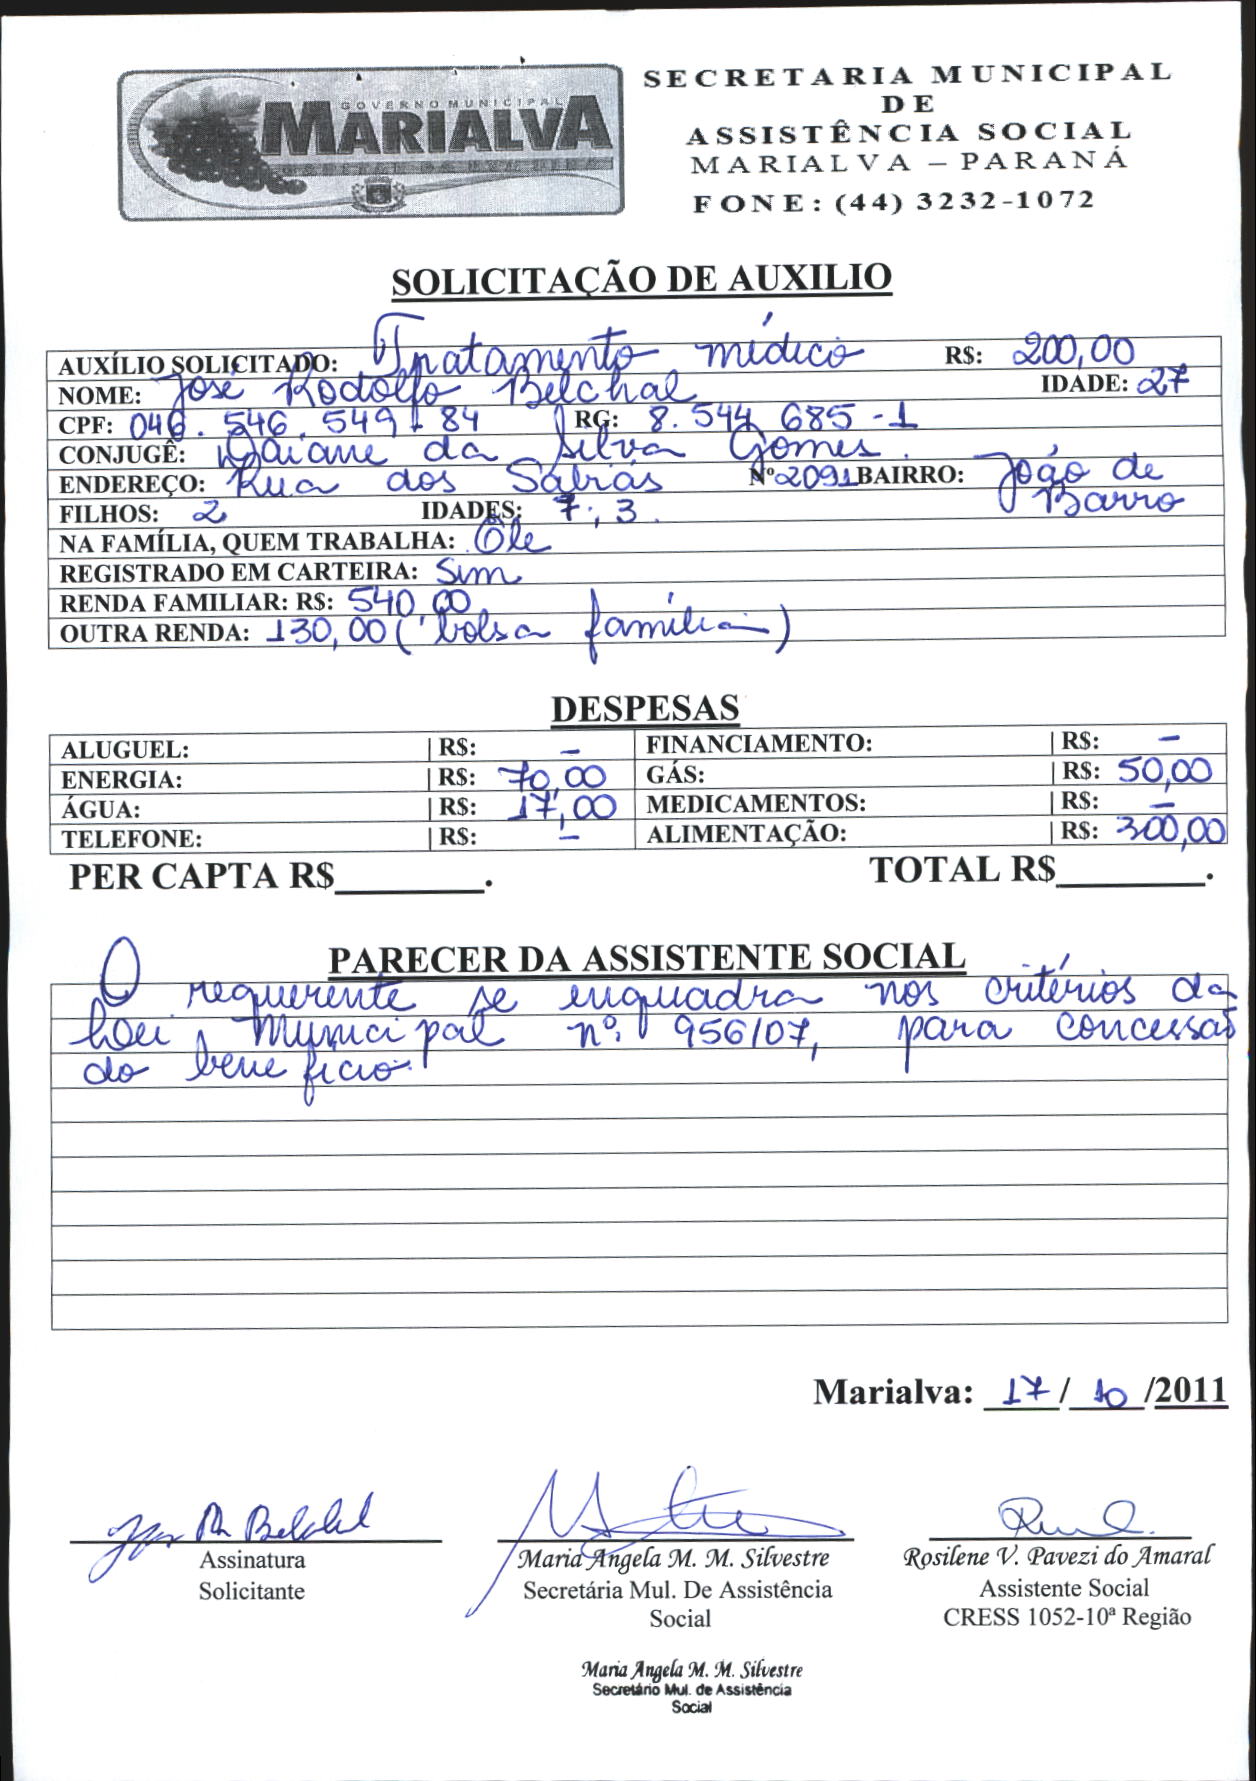 GOVERNO MUNICIPAL
MARIALVA
SECRETARIA MUNICIPAL
DE
ASSISTÊNCIA SOCIAL
MARIALVA – PARANÁ
FONE: (44) 3232-1072
SOLICITAÇÃO DE AUXILIO
AUXÍLIO SOLICITADO: Tratamento médico R$: 200,00
NOME: José Rodolfo Belchal IDADE: 27
CPF: 046.546.549-84 RG: 8.544 685-1
CONJUGÊ: Daiane da Silva Gomes.
ENDEREÇO: Rua dos Sabiás Nº 2091 BAIRRO: João de Barro
FILHOS: 2 IDADES: 7, 3.
NA FAMÍLIA, QUEM TRABALHA: Ele
REGISTRADO EM CARTEIRA: Sim
RENDA FAMILIAR: R$: 540,00
OUTRA RENDA: 130,00 (bolsa família)
DESPESAS
ALUGUEL: | R$: – FINANCIAMENTO: | R$: –
ENERGIA: | R$: 70,00 GÁS: | R$: 50,00
ÁGUA: | R$: 17,00 MEDICAMENTOS: | R$: –
TELEFONE: | R$: – ALIMENTAÇÃO: | R$: 300,00
PER CAPTA R$________. TOTAL R$________.
PARECER DA ASSISTENTE SOCIAL
O requerente se enquadra nos critérios da
Lei Municipal nº 956/07, para concessão
do benefício.
Marialva: 17/10/2011
Assinatura
Solicitante
Maria Angela M. M. Silvestre
Secretária Mul. De Assistência
Social
Rosilene V. Pavezi do Amaral
Assistente Social
CRESS 1052-10ª Região
Maria Angela M. M. Silvestre
Secretário Mul. de Assistência
Social